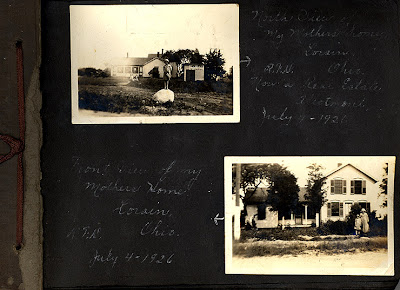 North View of
My Mothers Home
Lorain,
R.F.D. Ohio.
Now a Real Estate
Allotment
July 4-1926
Front View of my
Mothers Home
Lorain,
R.F.D. Ohio.
July 4-1926